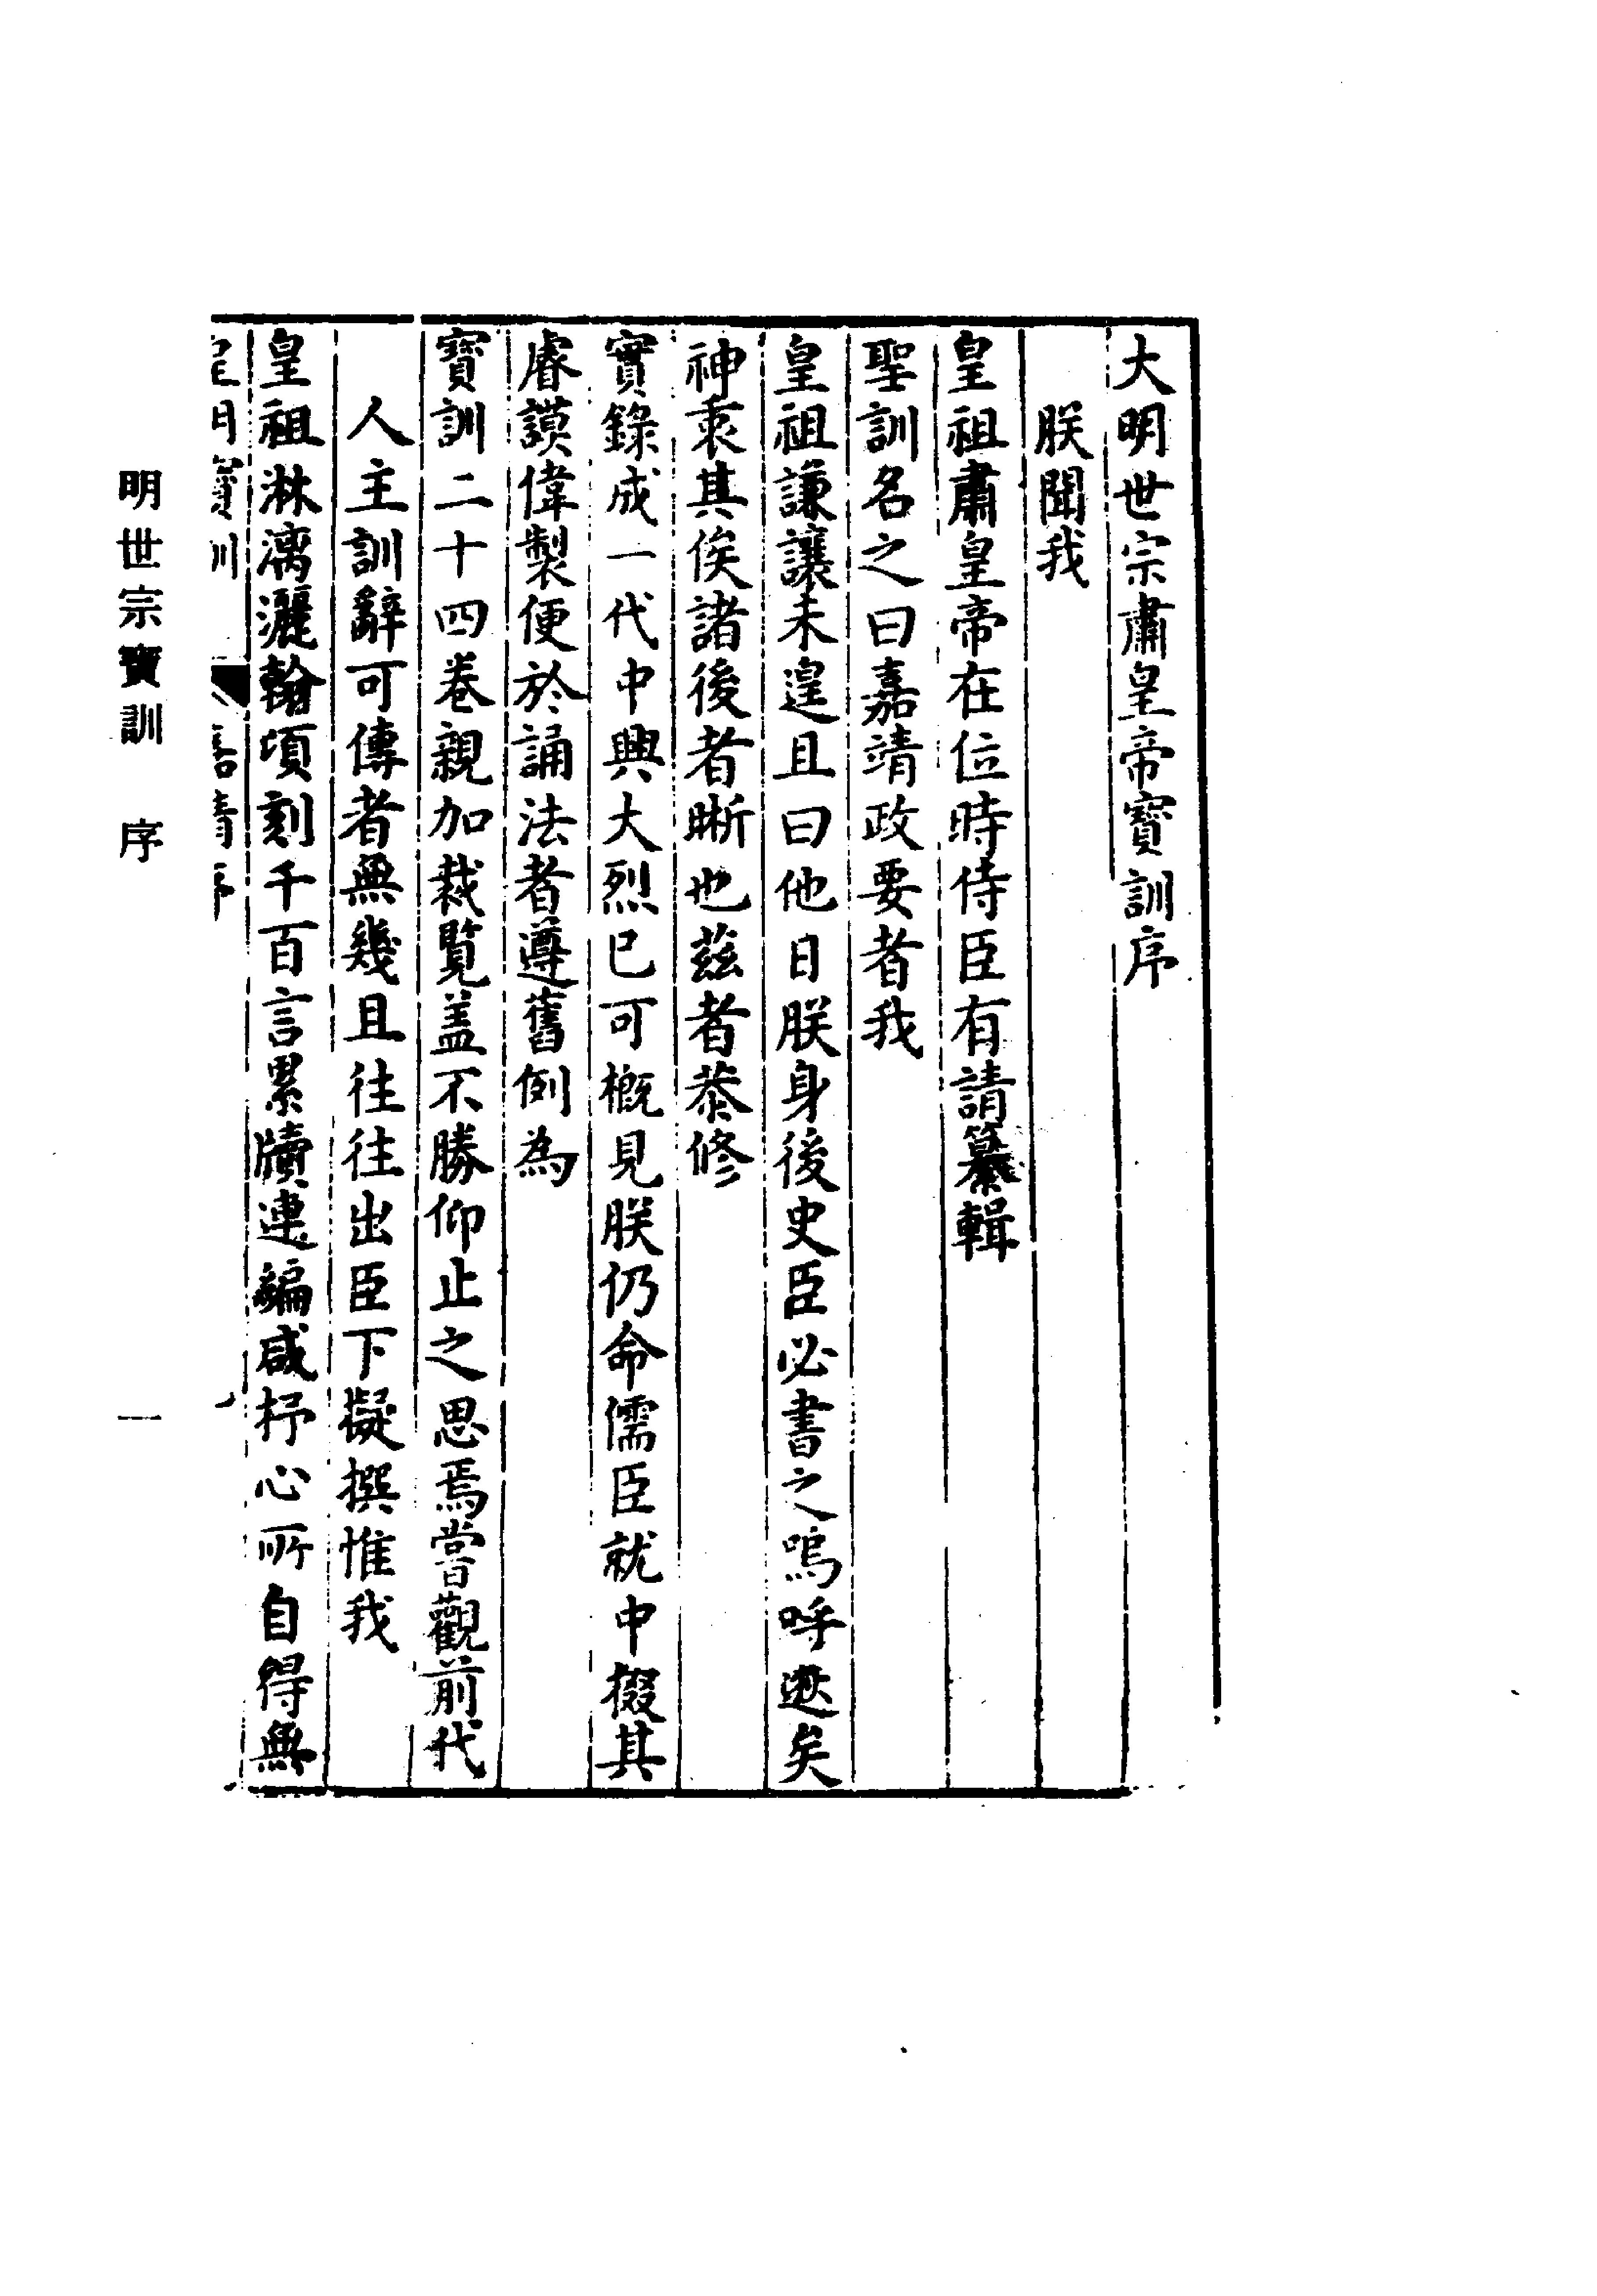 大明世宗肅皇帝寶訓序
朕聞我
皇祖肅皇帝在位時侍臣有請纂輯
聖訓名之曰嘉靖政要者我
皇祖謙讓未遑且曰他日朕身後史臣必書之嗚呼遜矣
神衷其俟諸後者晰也茲者恭修
實錄成一代中興大烈已可概見朕仍命儒臣就中掇其
睿謨偉製便於誦法者遵舊例為
寶訓二十四卷親加裁覽盖不勝仰止之思焉嘗觀前代
人主訓辭可傳者無幾且往往出臣下擬撰惟我
皇祖淋漓灑翰頃刻千百言累牘連編咸抒心所自得無
明世宗寶訓 序 一